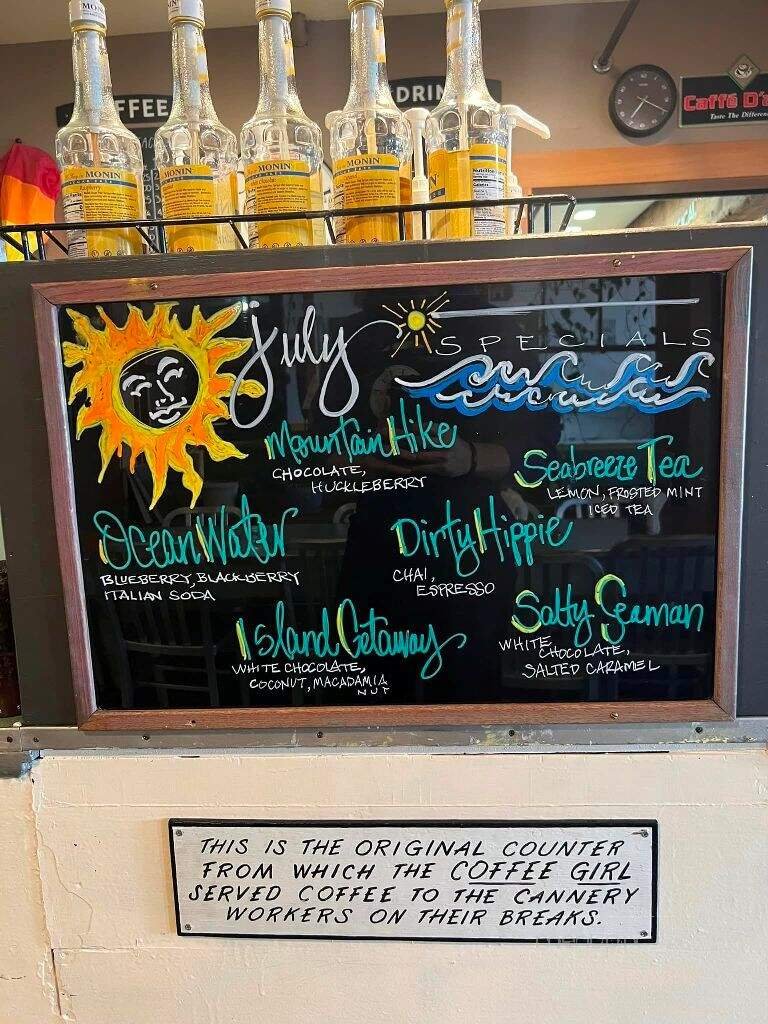 MONIN
MONIN
Raspberry
MONIN
MONIN
MONIN
Nutrition
FFEE
DRIN
Caffé D'a
Taste The Differen
July
SPECIALS
Mountain Hike
CHOCOLATE,
HUCKLEBERRY
Seabreeze Tea
LEMON, FROSTED MINT
ICED TEA
Ocean Water
BLUEBERRY, BLACKBERRY
ITALIAN SODA
Dirty Hippie
CHAI,
ESPRESSO
Island Getaway
WHITE CHOCOLATE,
COCONUT, MACADAMIA
NUT
Salty Seaman
WHITE
CHOCOLATE,
SALTED CARAMEL
THIS IS THE ORIGINAL COUNTER
FROM WHICH THE COFFEE GIRL
SERVED COFFEE TO THE CANNERY
WORKERS ON THEIR BREAKS.